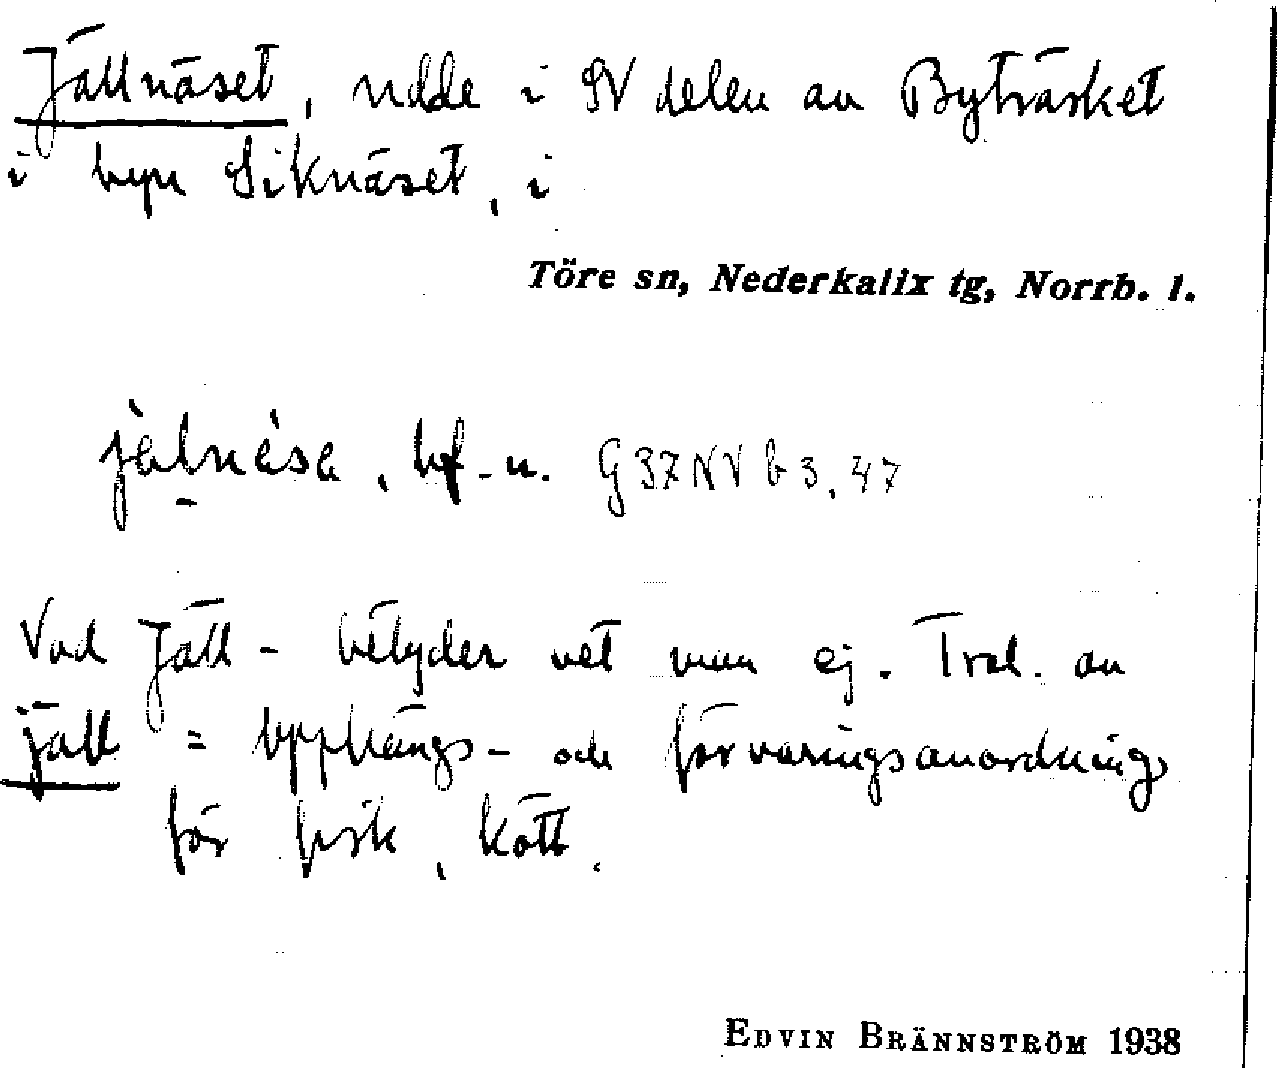 Jällnäset, udde i SV delen av Byträsket
i byn Siknäset, i
Töre sn, Nederkalix tg, Norrb. l.
bf. n. G37NVb3.47
Vad Jäll- betyder vet man ej. Trol. av
jäll = upphängs- och förvaringsanordning
för fisk, kött.
EDVIN BRÄNNSTRÖM 1938